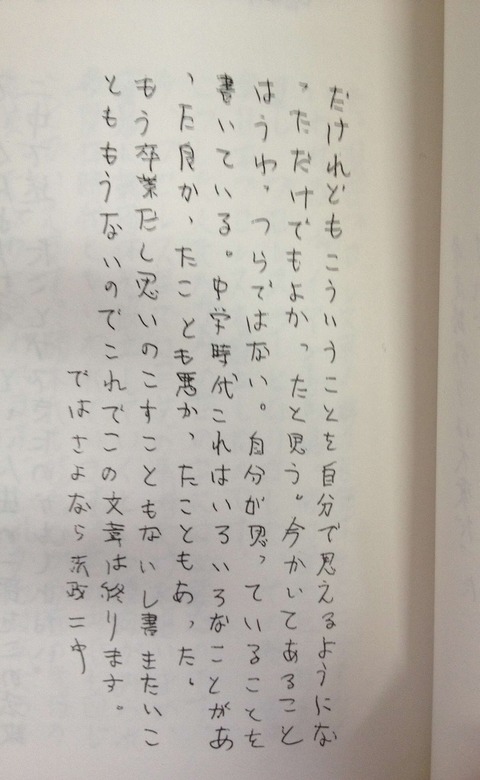 だけれどもこういうことを自分で思えるようにな
っただけでもよかったと思う。今かいてあること
はうわっつらではない。自分が思っていることを
書いている。中学時代これはいろいろなことがあ
った良かったことも悪かったこともあった。
もう卒業だし思いのこすこともないし書きたいこ
とももうないのでこれでこの文章は終ります。
ではさよなら法政二中